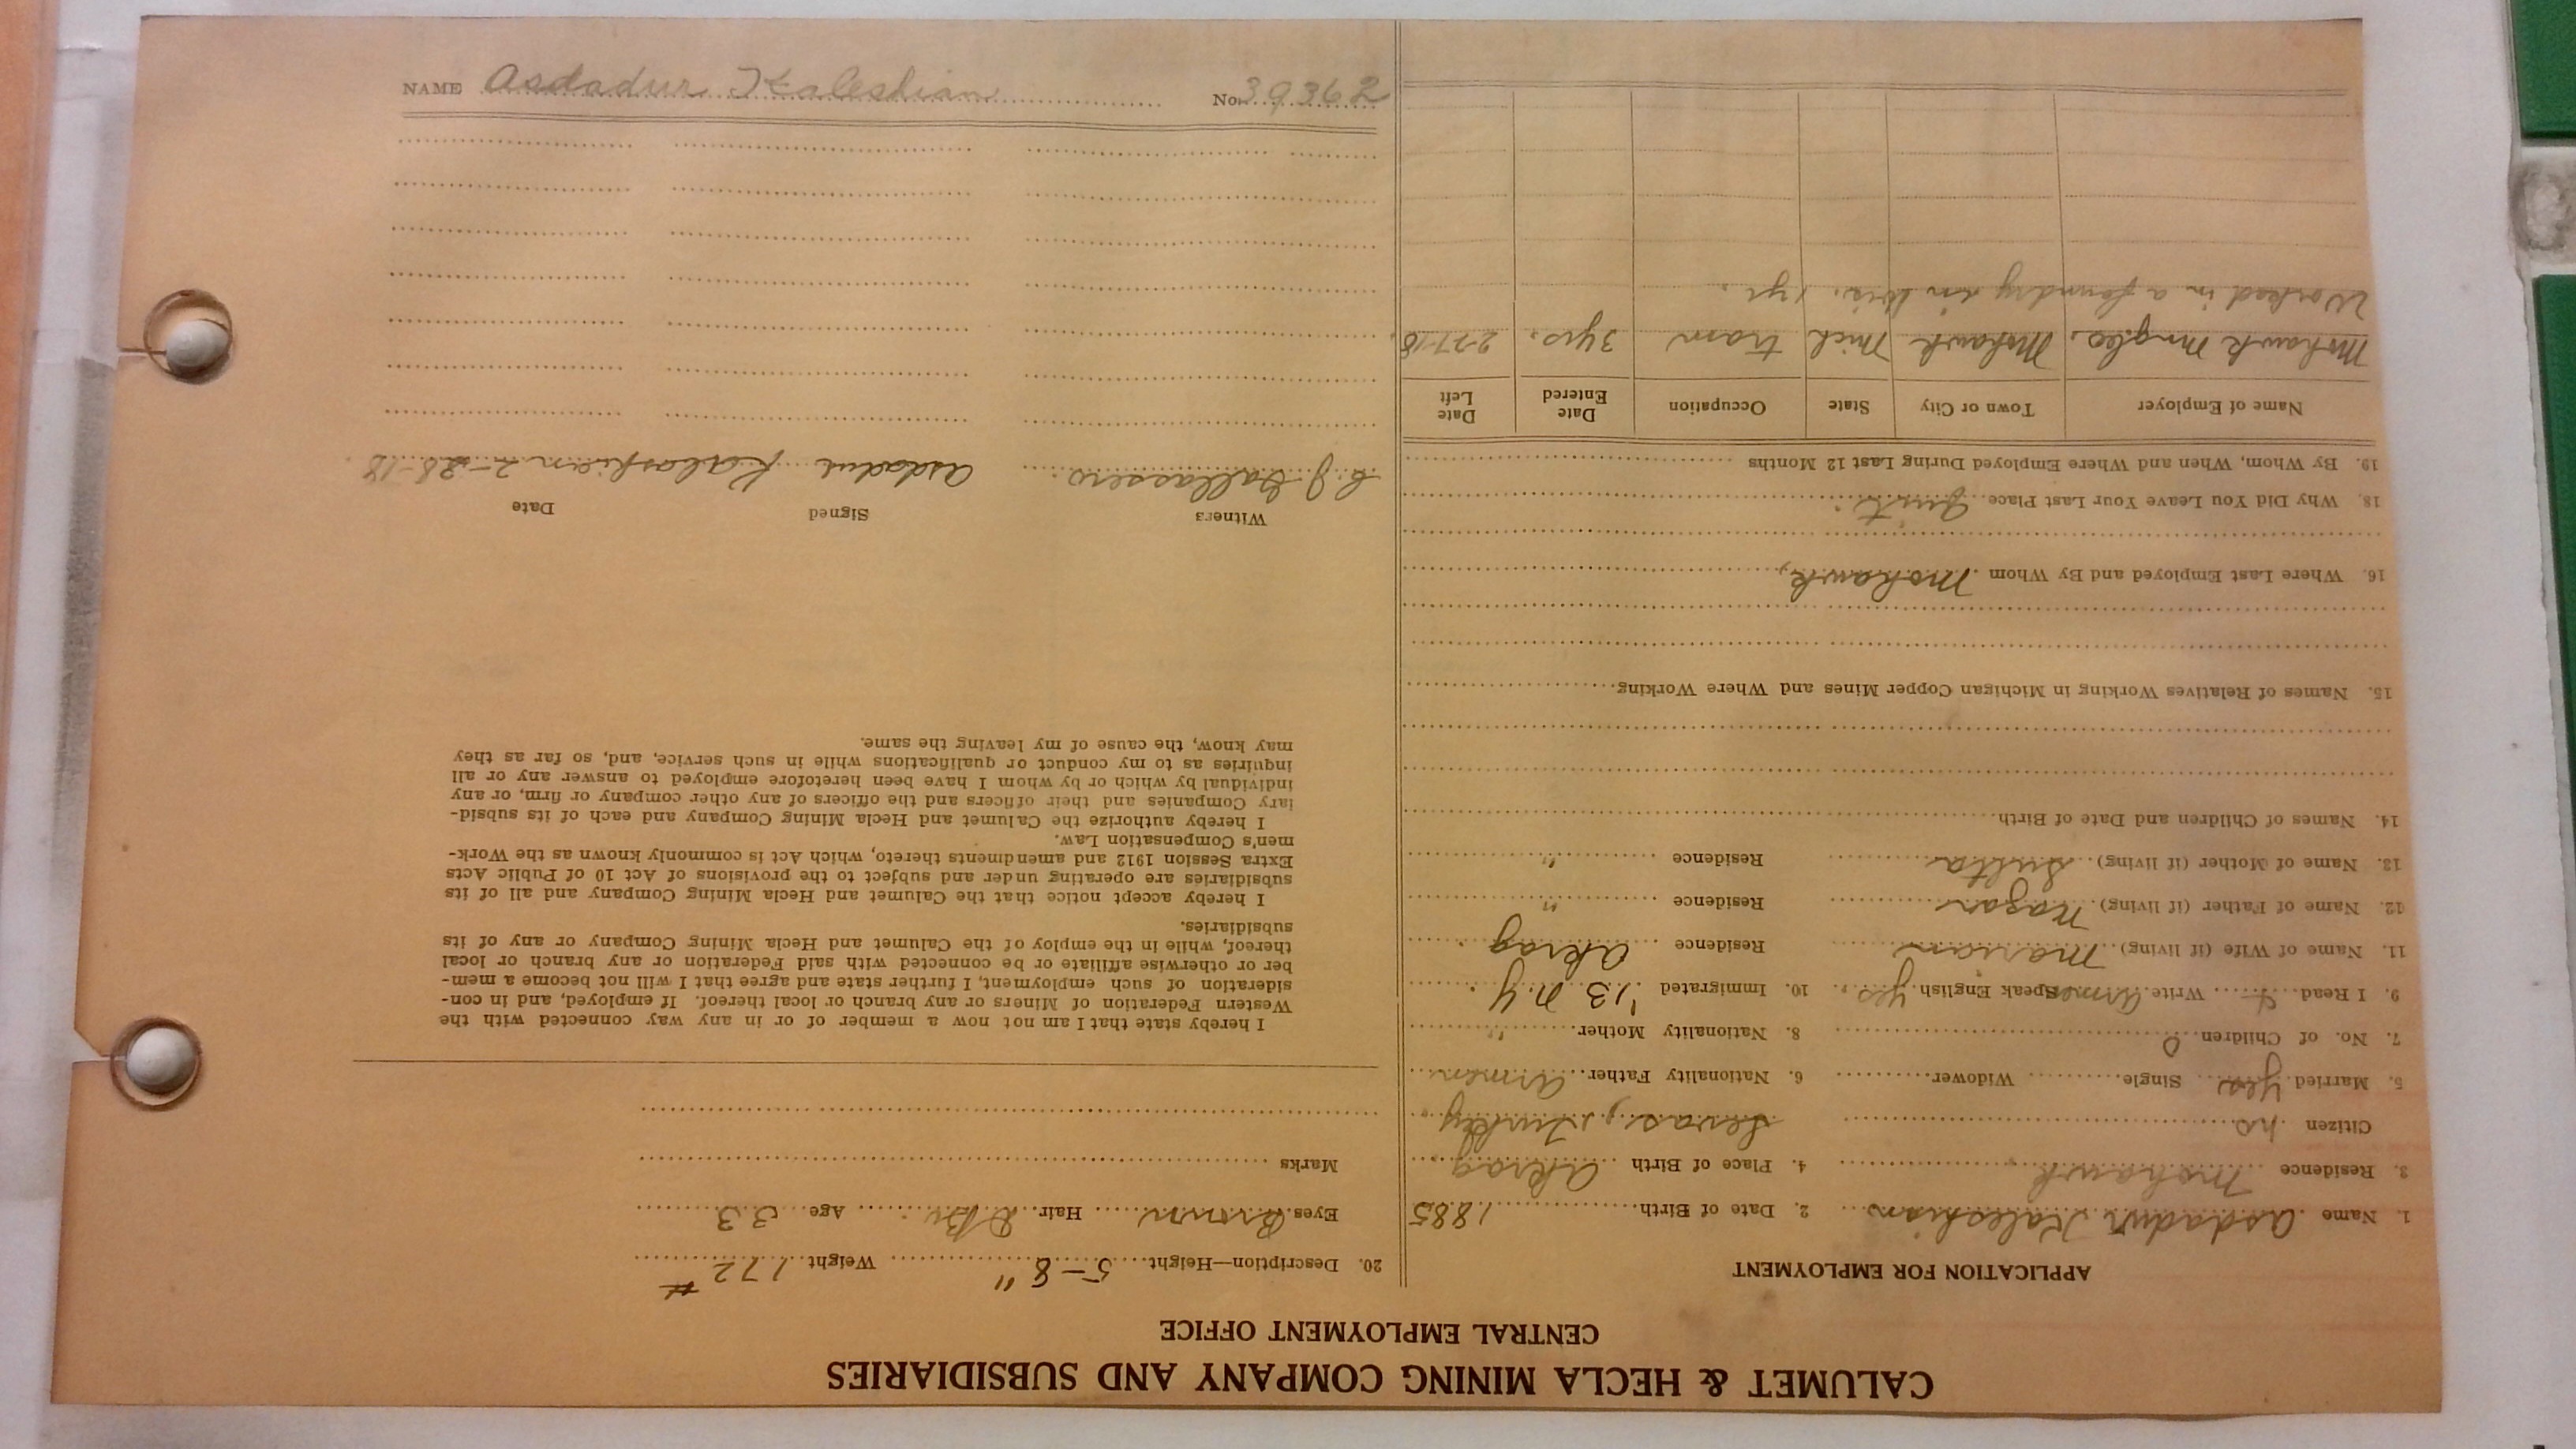 CALUMET & HECLA MINING COMPANY AND SUBSIDIARIES
CENTRAL EMPLOYMENT OFFICE
APPLICATION FOR EMPLOYMENT
1. Name Asdadur Kaleshian 2. Date of Birth 1885
3. Residence Mohawk 4. Place of Birth Akrag
Citizen no Sevas, Turkey
5. Married yes Single Widower 6. Nationality Father Armen
7. No. of Children 0 8. Nationality Mother "
9. I Read Write Armen Speak English yes 10. Immigrated '13 N.Y.
11. Name of Wife (if living) Marian Residence Akrag
12. Name of Father (if living) Magar Residence "
13. Name of Mother (if living) Sulta Residence "
14. Names of Children and Date of Birth
15. Names of Relatives Working in Michigan Copper Mines and Where Working
16. Where Last Employed and By Whom Mohawk
18. Why Did You Leave Your Last Place Quit
19. By Whom, When and Where Employed During Last 12 Months
Name of Employer Town or City State Occupation Date Entered Date Left
Mohawk Mng Co. Mohawk Mich tram 3 yrs. 2-27-18
Worked in a foundry in Wis. 1 yr.
20. Description—Height 5-8" Weight 172 #
Eyes Brown Hair D Br. Age 33
Marks
I hereby state that I am not now a member of or in any way connected with the
Western Federation of Miners or any branch or local thereof. If employed, and in con-
sideration of such employment, I further state and agree that I will not become a mem-
ber or otherwise affiliate or be connected with said Federation or any branch or local
thereof, while in the employ of the Calumet and Hecla Mining Company or any of its
subsidiaries.
I hereby accept notice that the Calumet and Hecla Mining Company and all of its
subsidiaries are operating under and subject to the provisions of Act 10 of Public Acts
Extra Session 1912 and amendments thereto, which Act is commonly known as the Work-
men's Compensation Law.
I hereby authorize the Calumet and Hecla Mining Company and each of its subsid-
iary Companies and their officers and the officers of any other company or firm, or any
individual by which or by whom I have been heretofore employed to answer any or all
inquiries as to my conduct or qualifications while in such service, and, so far as they
may know, the cause of my leaving the same.
Witness Signed Date
Asdadur Kaloshian 2-28-18
NAME Asdadur Kaleshian No. 39362